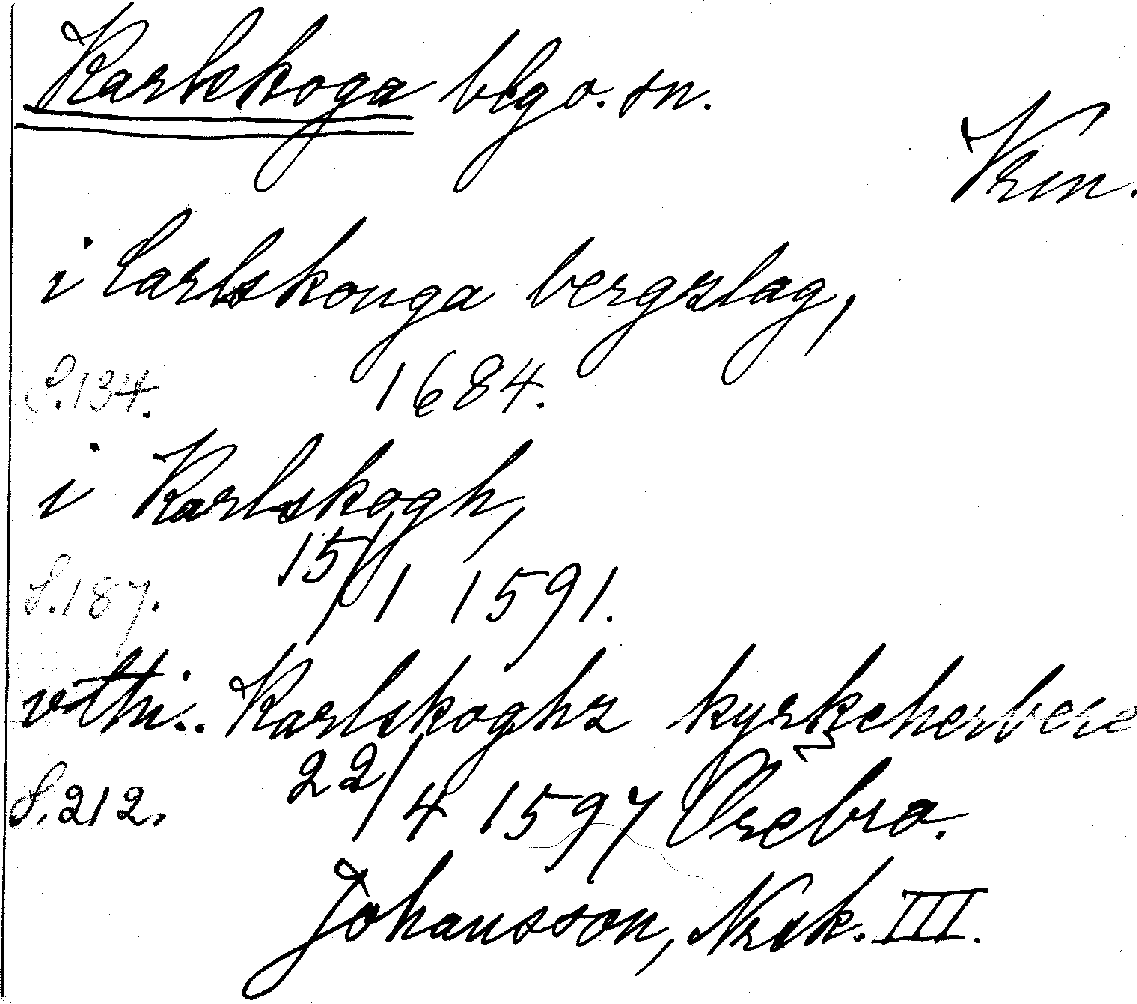 Karlskoga blg o. sn.
Vrm.
i Carlskouga bergzlag,
S.134. 1684.
i Karlskogh,
S.187. 15/1 1591.
vthi.. Karlskoghz kyrkeherbere
S.212. 22/4 1597 Örebro.
Johansson, Nrsk. III.